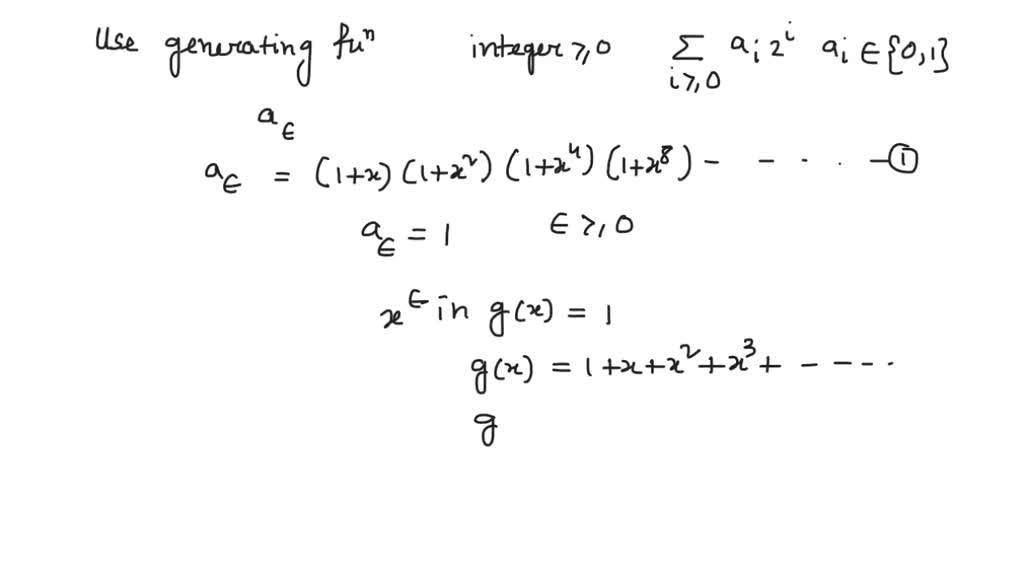 Use generating fuⁿ integer ≥,0 Σ aᵢ 2ⁱ aᵢ ∈ {0,1}
i≥,0
a_∈
a_∈ = (1+x) (1+x²) (1+x⁴) (1+x⁸) - - . . -①
a_∈ = 1 ∈ ≥, 0
x^∈ in g(x) = 1
g(x) = 1+x+x²+x³+ - - - - .
g